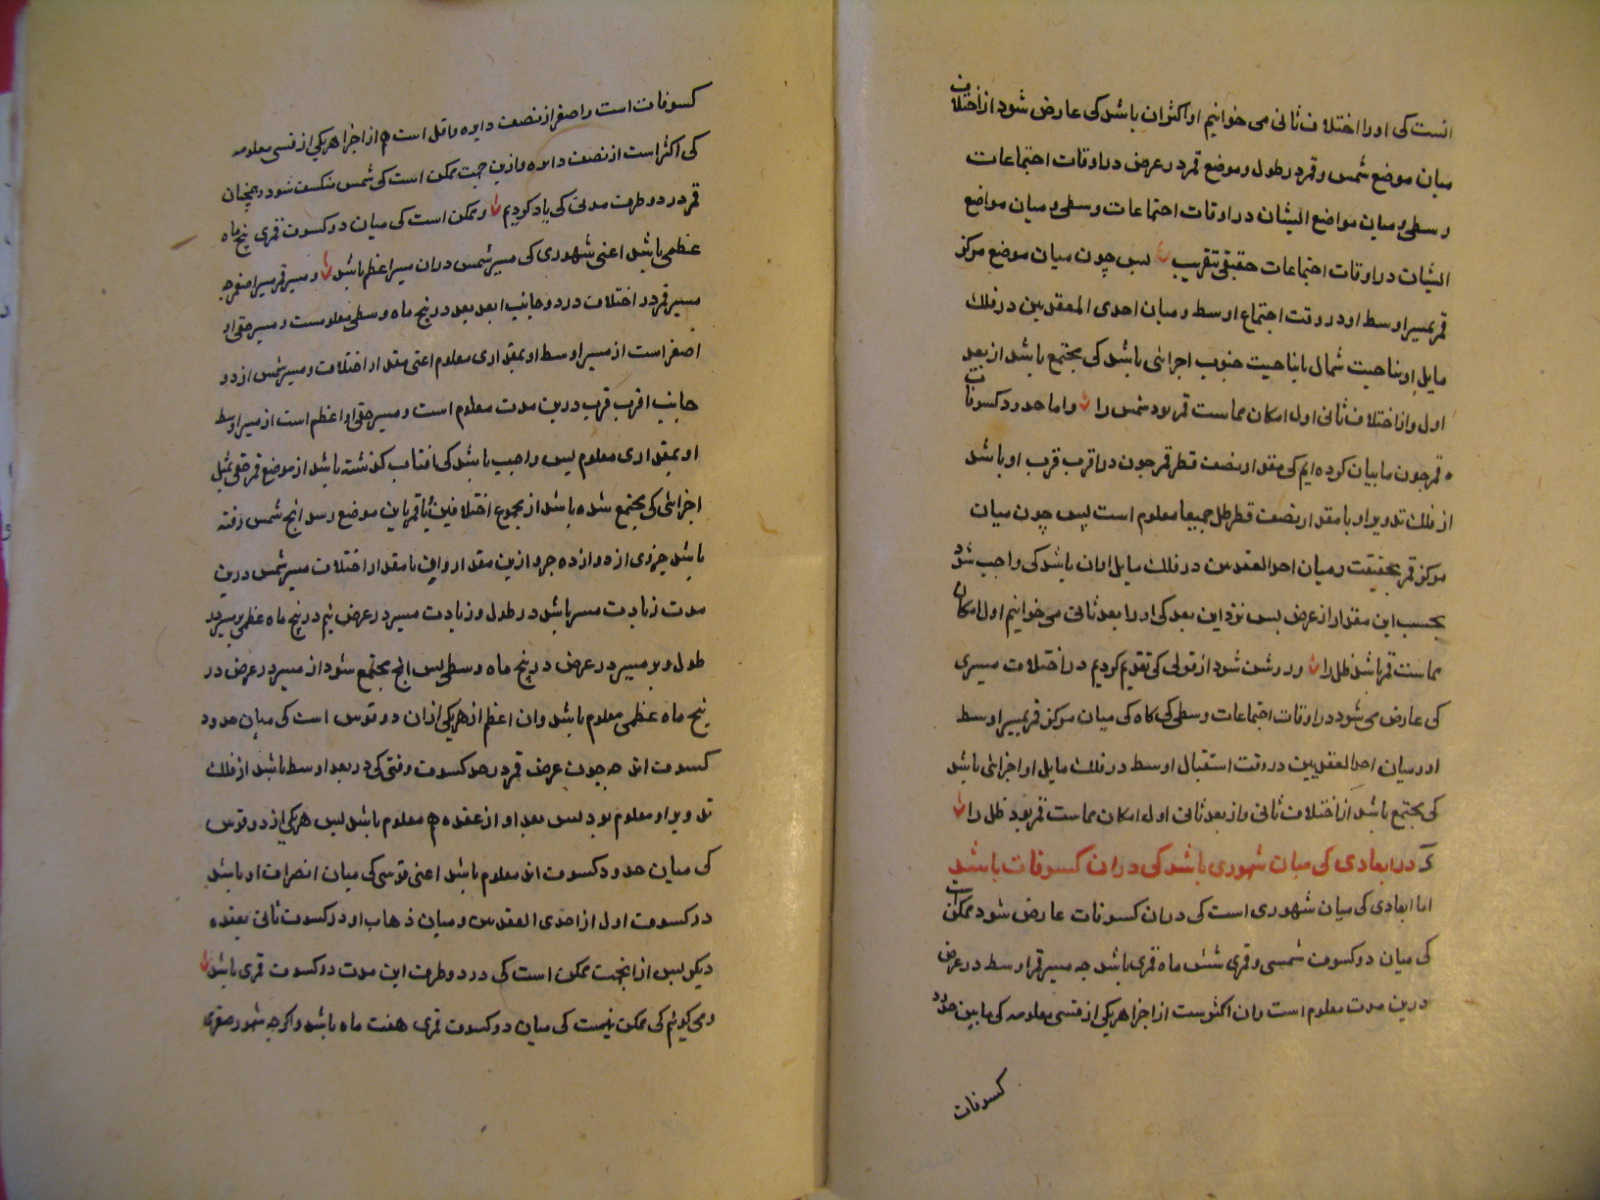 انست کی او را اختلاف ثانی می خوانیم او اکثر ان باشد کی عارض شود از اختلاف
میان موضع شمس و قمر در طول و موضع قمر در عرض در اوقات اجتماعات
وسطی و میان مواضع ایشان در اوقات اجتماعات وسطی و میان مواضع
ایشان در اوقات اجتماعات حقیقی بتقریب پس چون میان موضع مرکز
قمر بمسیر اوسط او در وقت اجتماع اوسط و میان احدی العقدتین در فلک
مایل او بناحیت شمال یا بناحیت جنوب اجزائی باشد کی مجتمع باشد از بعد
اول و از اختلاف ثانی اول امکان مماست قمر بود شمس را و اما حدود کسوفات
قمر چون ما بیان کرده ایم کی مقدار نصف قطر قمر چون در اقرب قرب او باشد
از فلک تدویر او با مقدار نصف قطر ظل جمیعا معلوم است پس چون میان
مرکز قمر بحقیقت و میان احد العقدتین در فلک مایل او ان باشد کی واجب شود
بحسب این مقدار از عرض پس نزد این بعد کی او را بعد ثانی می خوانیم اول امکان
مماست قمر باشد ظل را و روشن شود از قولی کی تقدیم کردیم در اختلاف مسیری
کی عارض می شود در اوقات اجتماعات وسطی کی کاه کی میان مرکز قمر بمسیر اوسط
او و میان احد العقدتین در وقت استقبال اوسط در فلک مایل او اجزائی باشد
کی مجتمع باشد از اختلاف ثانی و از بعد ثانی اول امکان مماست قمر بود ظل را
و در ابعادی کی میان شهوری باشد کی در ان کسوفات باشد
اما ابعادی کی میان شهوری است کی در ان کسوفات عارض شود ممکن است
کی میان دو کسوف شمسی و قمری شش ماه قمری باشد چه مسیر قمر اوسط در عرض
درین مدت معلوم است و ان اکثرست از اجزا هر یکی از قسی معلومه کی مابین حدود
کسوفات
کسوفات است و اصغر از نصف دایره و اقل است هم از اجزا هر یکی از قسی معلومه
کی اکثر است از نصف دایره و ازین جهت ممکن است کی شمس منکسف شود و همچنان
قمر در دو طرف مدتی کی یاد کردیم و ممکن است کی میان دو کسوف قمری پنج ماه
عظمی باشد اعنی شهوری کی مسیر شمس در ان مسیر اعظم باشد و مسیر قمر مسیر اصغر چه
مسیر قمر در اختلاف در دو جانب ابعد بعد در پنج ماه وسطی معلومست و مسیر حقی او
اصغر است از مسیر اوسط او بمقداری معلوم اعنی مقدار اختلاف و مسیر شمس از دو
جانب اقرب قرب درین مدت معلوم است و مسیر حقی او اعظم است از مسیر اوسط
او بمقداری معلوم پس واجب باشد کی افتاب کذشته باشد از موضع قمر حقی بمثل
اجزائی کی مجتمع شده باشد از مجموع اختلافین و تا قمر باین موضع رسد انچ شمس رفته
باشد جزوی از دوازده جزو ازین مقدار و این با مقدار اختلاف مسیر شمس درین
مدت زیادت مسیر باشد در طول و زیادت مسیر در عرض نیم در پنج ماه عظمی بر مسیر در
طول و بر مسیر در عرض در پنج ماه وسطی پس انچ مجتمع شود از مسیر در عرض در
پنج ماه عظمی معلوم باشد وان اعظم از هر یکی از ان دو قوس است کی میان حدود
کسوف اند چه چون عرض قمر در حد کسوف وقتی کی در بعد اوسط باشد از فلک
تدویر او معلوم بود پس بعد او از عقده هم معلوم باشد پس هر یکی از دو قوس
کی میان حدود کسوف اند معلوم باشد اعنی قوسی کی میان انصراف او باشد
در کسوف اول از احدی العقدتین و میان ذهاب او در کسوف ثانی بعقده
دیکر پس از انجهت ممکن است کی در دو طرف این مدت دو کسوف قمری باشد
و می کوئیم کی ممکن نیست کی میان دو کسوف قمری هفت ماه باشد و اکر چه شهور صغری